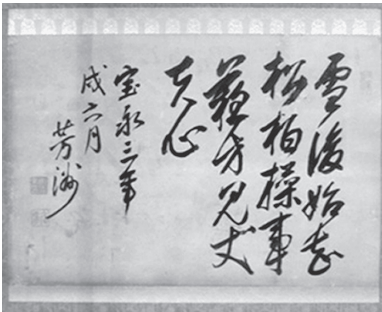 雪後始知
松柏操事
難方見丈
夫心
宝永三年
戌六月
芳洲